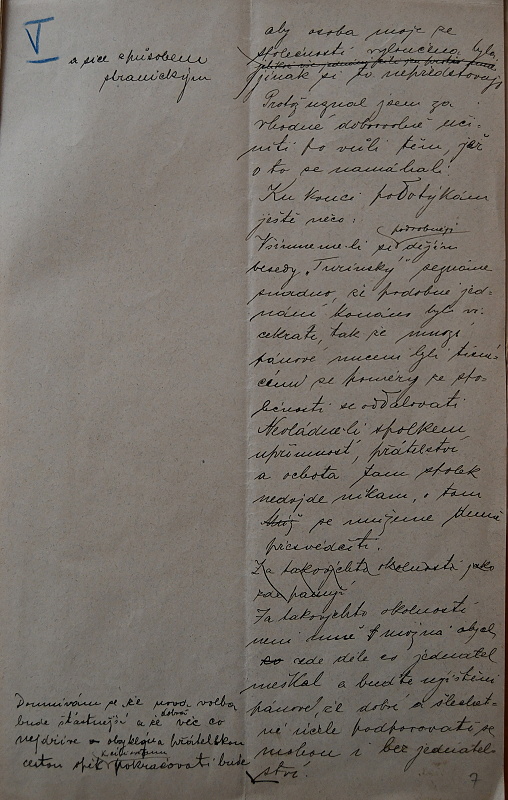 V
a sice způsobem
stranickým
aby osoba moje ze
společnosti vyloučena byla,
jinak si to nepředstavuji
Protož uznal jsem za
vhodné dobrovolně uči-
niti po vůli těm, již
o to se namáhali.
Ku konci podotýkám
ještě něco:
podrobněji
Všimneme-li si dějin
besedy „Turinský" seznáme
snadno, že podobné jed-
nání konáno bylo ví-
cekráte, tak že mnozí
pánové nuceni byli těmi-
to se poměry ze spo-
lečnosti se oddalovati
Neoládne-li spolkem
upřímnost, přátelství
a ochota tam spolek
nedojde nikam, o tom
se můžeme denně
přesvědčiti.
Za takovýchto okolností jako
zde panují
Za takovýchto okolností
není mně možná abych
zde déle co jednatel
meškal a buďte ujištěni
pánové, že dobré a šlechet-
né účele podporovati se
mohou i bez jednatel-
ství.
Domnívám se že nová volba
bude šťastnější a že dobrá věc co
nejdříve obvyklou a přátelskou
cestou opět pokračovati bude
7